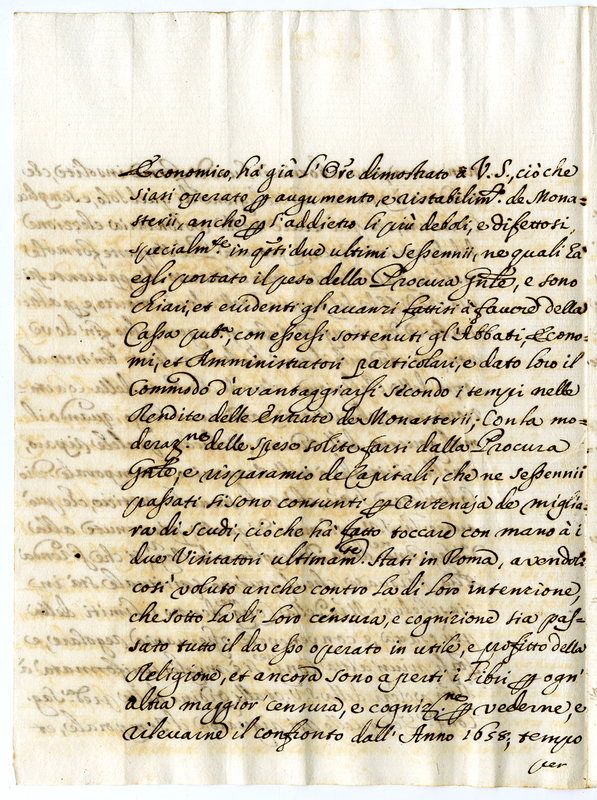 Economico, hà già l'Ore dimostrato à V. S., ciò che
siasi operato p augumento, e ristabilimto. de Mona=
sterii, anche p l'addietro li più deboli, e difettosi,
specialmte in qsti due ultimi Sessennii, ne quali hà
egli portato il peso della Procura Gnle, e sono
chiari, et euidenti gl'auanzi fattisi à fauore della
Cassa pub.a, con essersi sostenuti gl'Abbati, Econo=
mi, et Amministratori particolari, e dato loro il
Commodo d'avantaggiarsi secondo i tempi nelle
Rendite delle Entrate de Monasterii; Con la mo=
deraz.ne delle spese solite farsi dalla Procura
Gnle, e risparamio de Capitali, che ne Sessennii
passati si sono consunti p Centenaja de miglia=
ra di scudi, ciò che hà fatto toccare con mano à i
due Visitatori ultimamte. stati in Roma, avendoli
così voluto anche contro la di loro intenzione,
che sotto la di loro censura, e cognizione sia pas=
sato tutto il da esso operato in utile, e profitto della
Religione, et ancora sono aperti i libri p ogn'
altra maggior censura, e cogniz.ne p vederne, e
rilevarne il confronto dall'Anno 1658; tempo
per